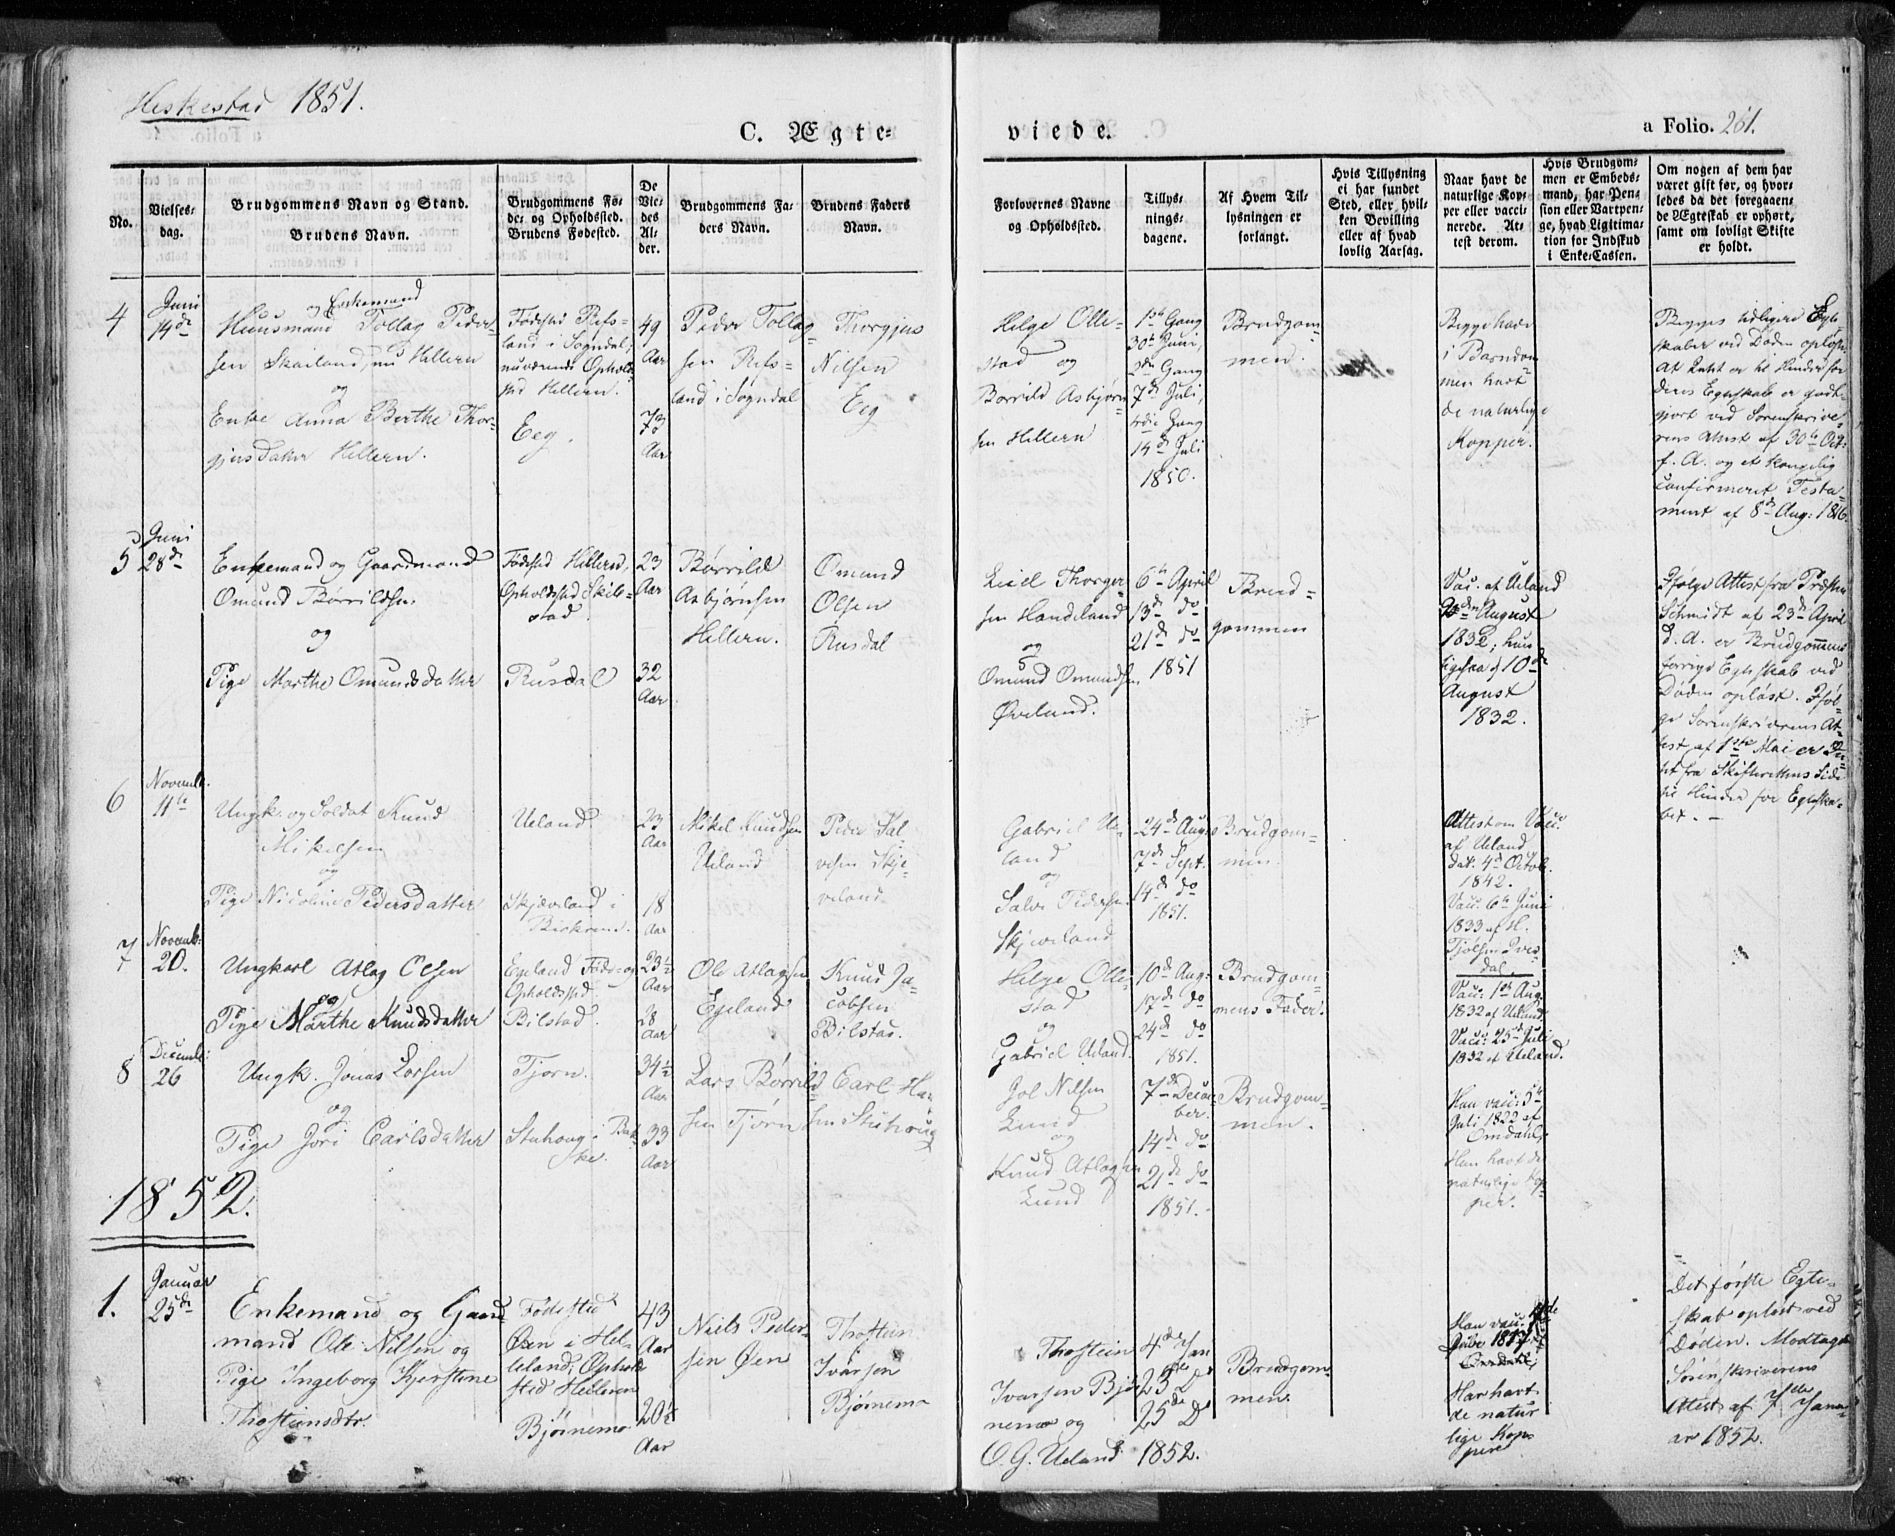 Heskestad 1851.
C. Ægte-
viede.
a Folio. 261.
No.
Vielses-
dag.
Brudgommens Navn og Stand.
Brudens Navn.
Brudgommens Fø-
de- og Opholdssted.
Brudens Fødested.
De
Vie-
des
Al-
der.
Brudgommens Fa-
ders Navn.
Brudens Faders
Navn.
Forlovernes Navne
og Opholdssted.
Tillys-
nings-
dagene.
Af Hvem Til-
lysningen er
forlangt.
Hvis Tillysning
ei har fundet
Sted, eller hvil-
ken Bevilling
eller af hvad
lovlig Aarsag.
Naar havt de
naturlige Kop-
per eller vacci-
nerede. At-
test derom.
Hvis Brudgom-
men er Embeds-
mand, har Pen-
sion eller Vartpen-
ge, hvad Ligitima-
tion for Indskud
i Enke-Cassen.
Om nogen af dem har
været gift før, og hvor-
ledes da det foregaaen-
de Ægteskab er ophørt,
samt om lovligt Skifte
er holdt.
4
Juni
14de
og Enkemand
Huusmand Tollag Peder-
sen Skailand, nu Hellern
og
Enke Anna Berthe Thor-
gjusdatter Hellern.
Fødested Refs-
land i Sogndal,
nuværende Ophold-
sted Hellern.
Eeg.
49
Aar
73
Aar
Peder Tollag-
sen Refs-
land i Sogndal
Thorgjus
Nilsen
Eeg
Helge Olle-
stad og
Borrild Asbjørn-
sen Hellern
1ste Gang
30te Juni,
2den Gang
7de Juli,
3die Gang
14de Juli
1850.
Brudgom-
men.
Begge have
i Barndom-
men havt
de naturlige
Kopper.
Begges tidligere Egte
skaber ved Døden opløst.
At Intet er til Hinder for
deres Egteskab er godt-
gjort ved Sorenskrive-
rens Attest af 30te Oct.
f. A. og et kongelig
confirmeret Testa-
ment af 8de Aug: 1816.
5
Juni
28de
Enkemand og Gaardmand
Omund Børrildsen.
og
Pige Marthe Omundsdatter
Fødested Hellern,
Opholdssted Skils-
stad.
Rusdal
23
Aar
32
Aar
Børrild
Asbjørnsen
Hellern.
Omund
Olsen
Rusdal
Eiel Thorger-
sen Handeland
og
Omund Omundsen
Øveland.
6te April
13de do
21de do
1851
Brud-
gommen
Vac. af Ueland
August
1832; hun
ligesaa d 10de
August
1832.
Ifølge Attest fra Præsten
Schmidt af 23de April
d. A. er Brudgommens
forrige Egteskab ved
Døden opløst. Iføl-
ge Sorenskriverens At-
test af 1ste Mai er In-
tet fra Skifterettens Side
til Hinder for Egteska-
bet. -
6
Novemb.
11te
Ungk. og Soldat Knud
Mikelsen
og
Pige Nicoline Pedersdatter
Ueland
Skjæveland i
Birkrem.
23
Aar
18
Aar
Mikel Knudsen
Ueland
Peder Sal-
vesen Skje-
veland
Gabriel Ue-
land
og
Salve Pedersen
Skjeveland
24de Aug.
7de Sept.
14de do
1851.
Brudgom-
men.
Attest om Vac.
af Ueland
dat. 4de Octob.
1842.
Vac. 6te Juni
1833 af H.
7
Novemb.
20.
Ungkarl Atlag Olsen
og
Pige Marthe Knudsdatter
Egeland Føde- og
Opholdssted
Bilstad.
23½
Aar
28
Aar
Ole Atlagsen
Egeland
Knud Ja-
cobsen
Bilstad.
Helge Olle-
stad
og
Gabriel Ueland.
10de Aug:
17de do
24de do
1851.
Brudgom-
mens Fader.
Vac. 1ste Aug.
1832 af Ueland.
Vac. 25de Juli
1832 af Ueland.
8
Decemb.
26
Ungk. Jonas Larsen
og
Pige Jori Carlsdatter
Tjorn.
Stuhoug i Bak-
ke.
34½
Aar
33
Aar
Lars Børrild-
sen Tjørn
Carl Han-
sen Stuhoug
Jol Nilsen
Lund
og
Knud Atlagsen
Lund
7de Decem-
ber.
14de do
21de do
1851.
Brudgom-
men.
Han vac. 5te
Juli 1822 af
Omdahl;
Hun havt de
naturlige Kop-
per.
1852.
1.
Januar
25de
Enkemand og Gaard-
mand Ole Nilsen og
Pige Ingeborg Kjerstine
Thosteinsdtr.
Fødested
Øen i Hel-
leland; Ophold-
sted Helleren
Bjørnemo
43
Aar
20½
Aar
Niels Peder-
sen Øen
Thostein
Ivarsen
Bjørnemo
Thostein
Ivarsen Bjør-
nemo og
O. G. Ueland
4de Jan
25de D
1852.
Brudgom-
men.
Han vac.
Har havt
de natur
lige Kop-
per
Det første Egte-
skab opløst ved
Døden. Modtaget
Sorenskriverens
Attest af 7de Janu-
ar 1852.